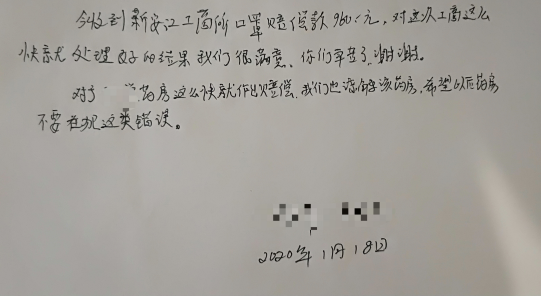 今收到新安江工商所口罩赔偿款960元,对这次工商这么
快就处理好的结果我们很满意、你们辛苦了,谢谢。
对于 药房这么快就作出赔偿,我们也谅解该药房,希望以后药房
不要在犯这类错误。
2020年1月18日